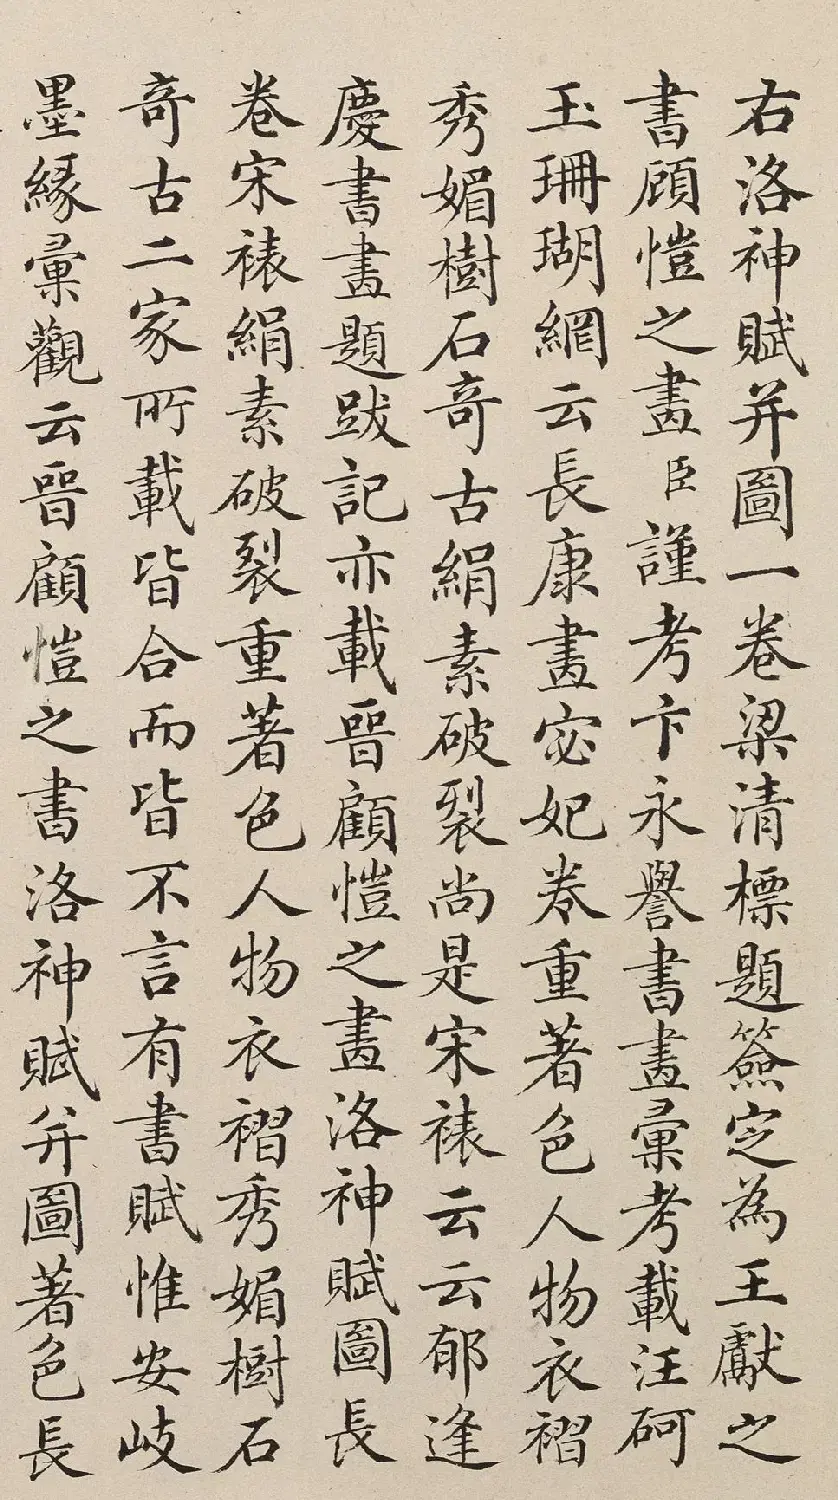 右洛神賦并圖一卷梁清標題簽定為王獻之
書顧愷之畫臣謹考卞永譽書畫彙考載汪砢
玉珊瑚網云長康畫宓妃卷重著色人物衣褶
秀媚樹石奇古絹素破裂尚是宋裱云云郁逢
慶書畫題跋記亦載晉顧愷之畫洛神賦圖長
卷宋裱絹素破裂重著色人物衣褶秀媚樹石
奇古二家所載皆合而皆不言有書賦惟安岐
墨緣彙觀云晉顧愷之書洛神賦并圖著色長